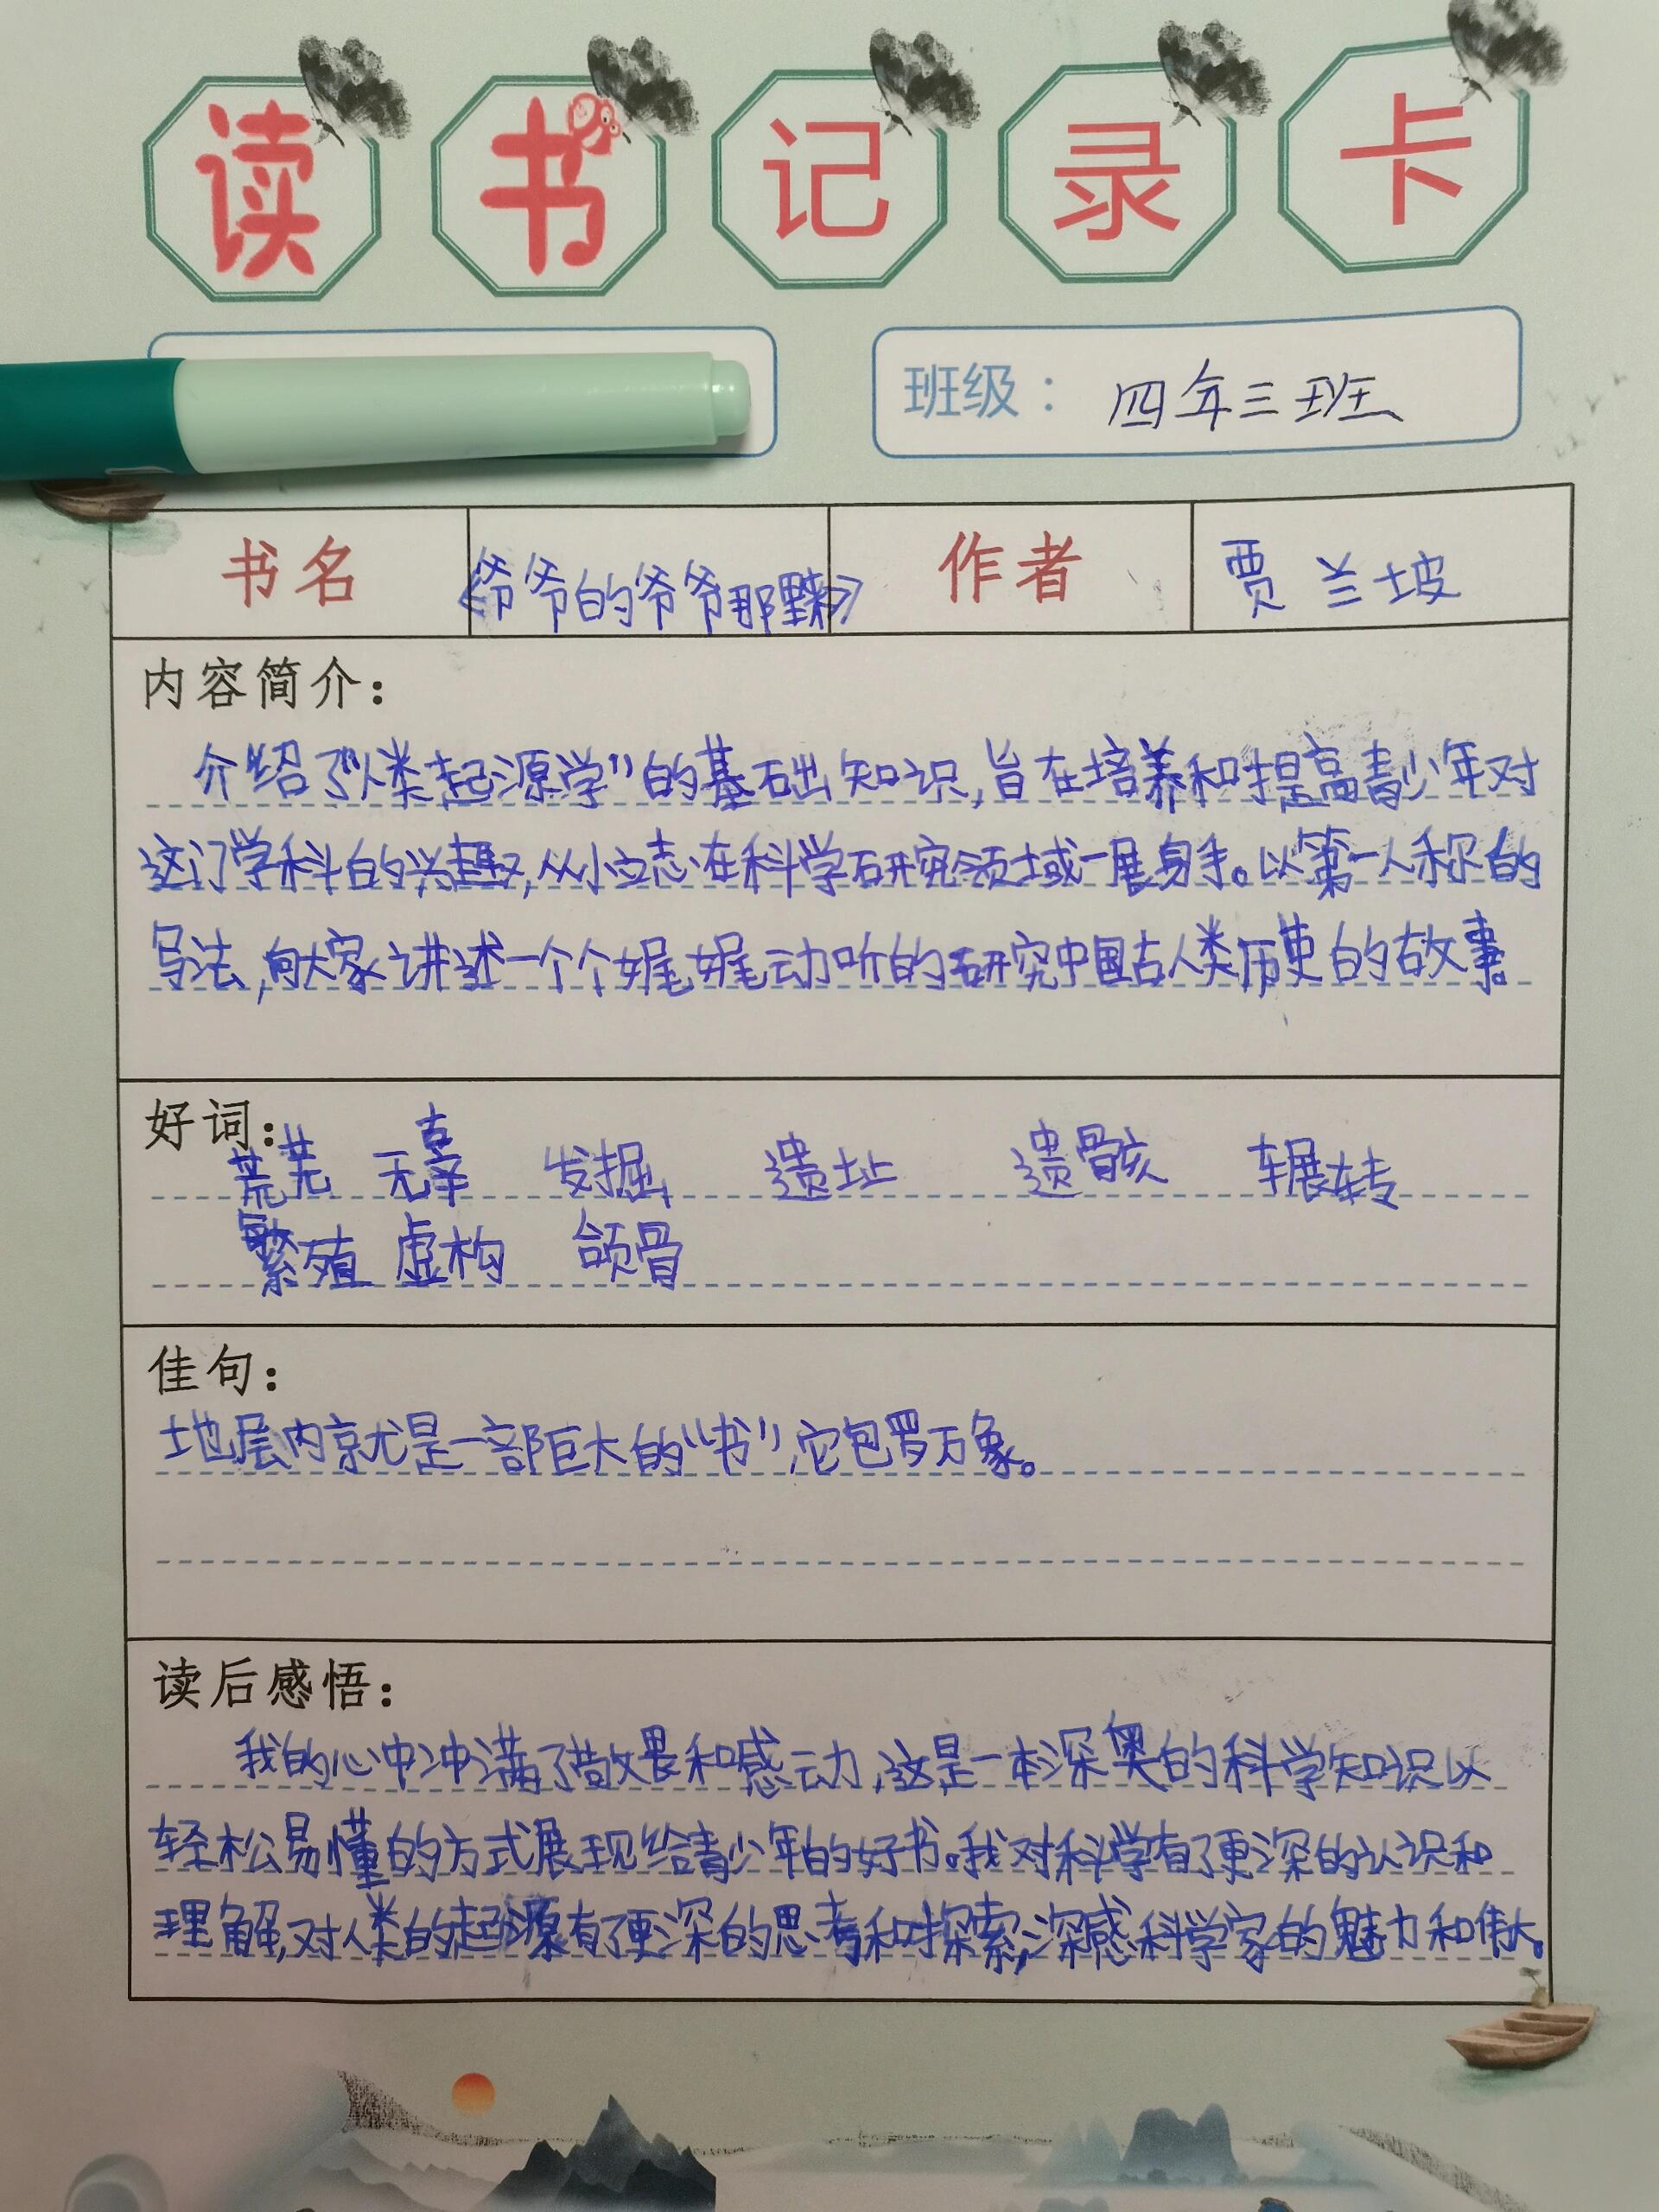 读书记录卡
班级：四年三班
书名 《爷爷的爷爷哪里来》 作者 贾兰坡
内容简介：
介绍了“人类起源学”的基础知识,旨在培养和提高青少年对
这门学科的兴趣,从小立志在科学研究领域一展身手。以第一人称的
写法,向大家讲述一个个娓娓动听的研究中国古人类历史的故事。
好词：
荒芜 无辜 发掘 遗址 遗骸 辗转
繁殖 虚构 颌骨
佳句：
地层内就是一部巨大的“书”,它包罗万象。
读后感悟：
我的心中冲满了敬畏和感动,这是一本深奥的科学知识以
轻松易懂的方式展现给青少年的好书。我对科学有了更深的认识和
理解,对人类的起源有了更深的思考和探索,深感科学家的魅力和伟大。